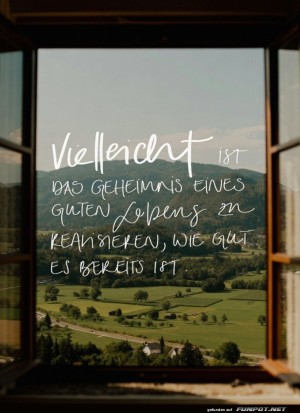 Vielleicht IST
DAS GEHEIMNIS EINES
GUTEN Lebens ZU
REALISIEREN, WIE GUT
ES BEREITS IST.
gefunden auf FUNPOT.NET